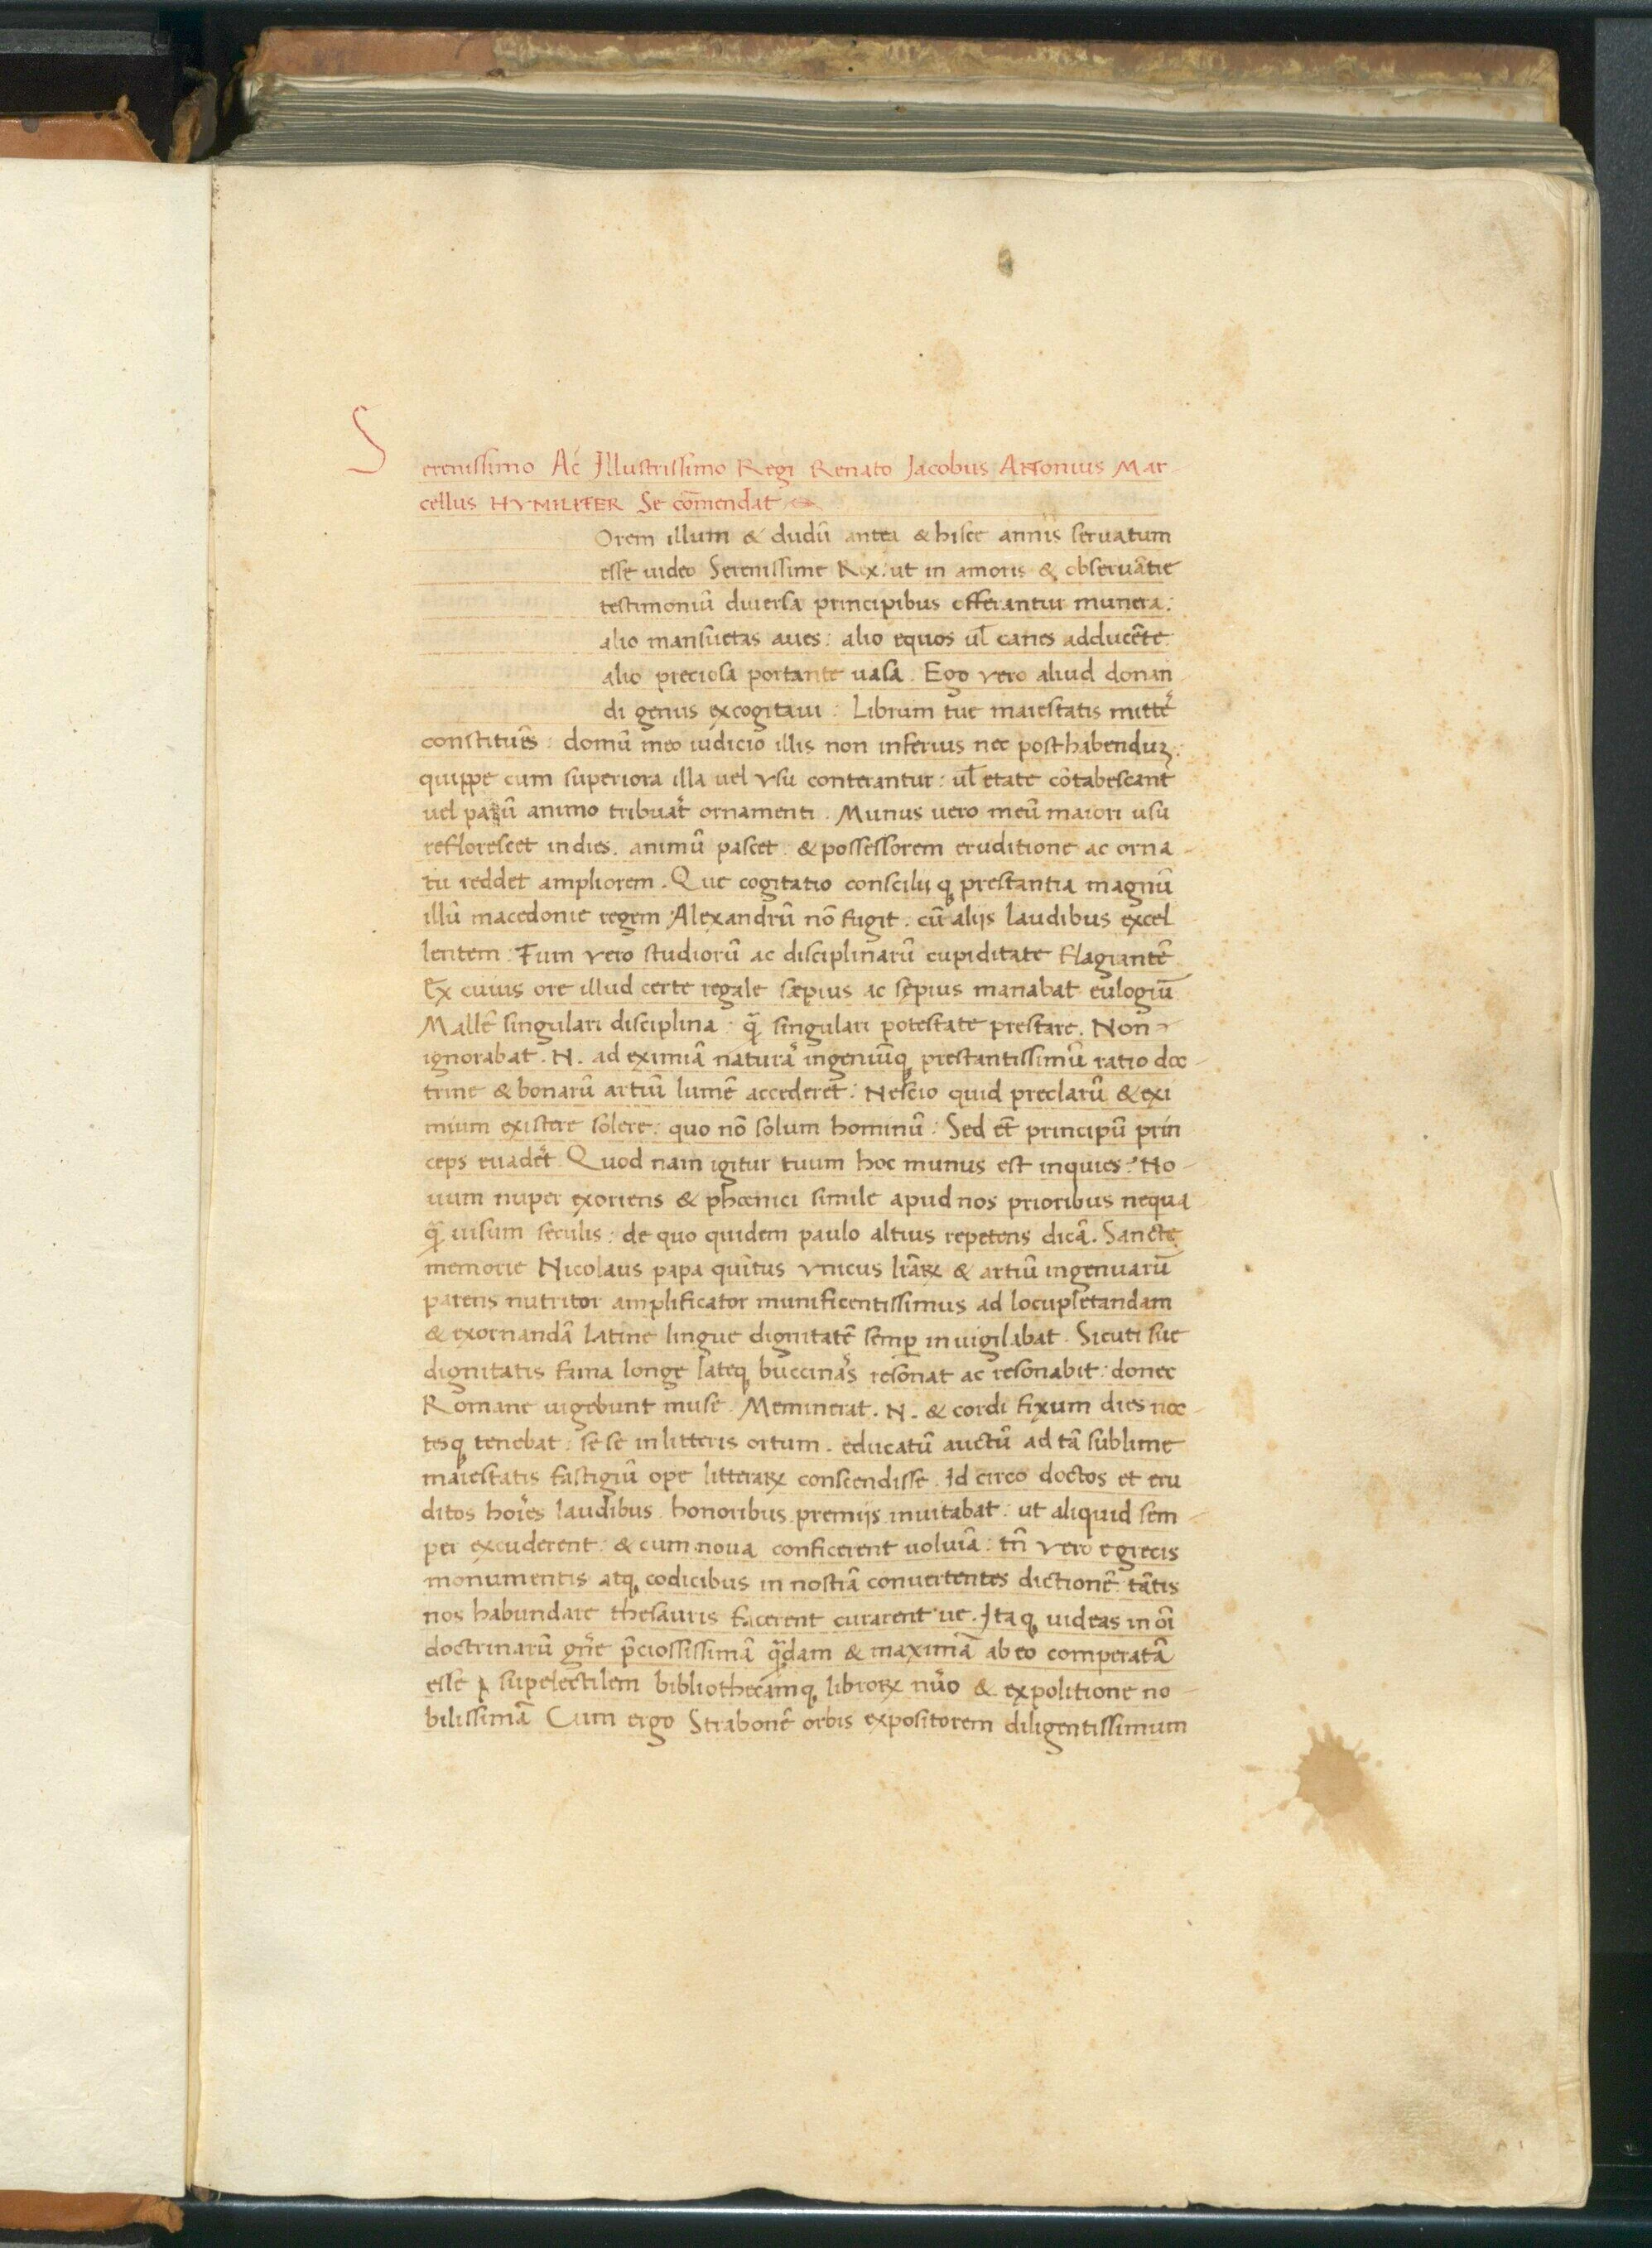 Serenissimo Ac Illustrissimo Regi Renato Jacobus Antonius Mar
cellus HVMILITER Se cōmendat
Orem illum & dudū antea & hisce annis seruatum
esse uideo Serenissime Rex: ut in amoris & obseruātie
testimoniū diuersa principibus offerantur munera:
alio mansuetas aues: alio equos ul̄ canes adducēte
alio preciosa portante uasa. Ego vero aliud donan
di genus excogitaui: Librum tue maiestatis mittē
constituēs: domū meo iudicio illis non inferius nec posthabenduʒ:
quippe cum superiora illa uel vsu conterantur: ul̄ etate cōtabescant
uel parū animo tribuāt ornamenti. Munus vero meū maiori usu
reflorescet indies. animū pascet: & possessorem eruditione ac orna-
tu reddet ampliorem. Que cogitatio consciliiqꝫ prestantia magnū
illū macedonie regem Alexandrū nō fugit. cū alijs laudibus excel
lentem: Tum vero studiorū ac disciplinarū cupiditate flagrantē
Ex cuius ore illud certe regale sæpius ac sępius manabat eulogiū
Mallē singulari disciplina: q̄ singulari potestate prestare. Non
ignorabat. N. ad eximiā naturā ingeniūqꝫ prestantissimū ratio doc-
trine & bonarū artiū lumē accederet: Nescio quid preclarū & exi
mium existere solere: quo nō solum hominū: Sed et̄ principū prin
ceps euadēt. Quod nam igitur tuum hoc munus est inquies? No-
uum nuper exoriens & phœnici simile apud nos prioribus nequa
q̄ uisum seculis: de quo quidem paulo altius repetens dicā. Sancte
memorie Nicolaus papa quītus vnicus lr̄aꝝ & artiū ingenuarū
parens nutritor amplificator munificentissimus ad locupletandam
& exornandā Latine lingue dignitatē semꝑ inuigilabat. Sicuti sue
dignitatis fama longe lateqꝫ buccinās resonat ac resonabit: donec
Romane uigebunt muse. Meminerat. N. & cordi fixum dies noc-
tesqꝫ tenebat: se se in litteris ortum. educatū auctū ad tā sublime
maiestatis fastigiū ope litteraꝝ conscendisse. Id circo doctos et eru
ditos hoīes laudibus honoribus premijs inuitabat: ut aliquid sem-
per excuderent: & cum noua conficerent uoluīa: tn̄ vero e grecis
monumentis atqꝫ codicibus in nostrā conuertentes dictionē tātis
nos habundare thesauris facerent curarent ue. Itaqꝫ uideas in oī
doctrinarū gn̄e p̄ciossissimā q̄dam & maximā ab eo comperatā
esse supelectilem bibliothecamqꝫ libroꝝ nūo & expolitione no-
bilissimā Cum ergo Strabonē orbis expositorem diligentissimum